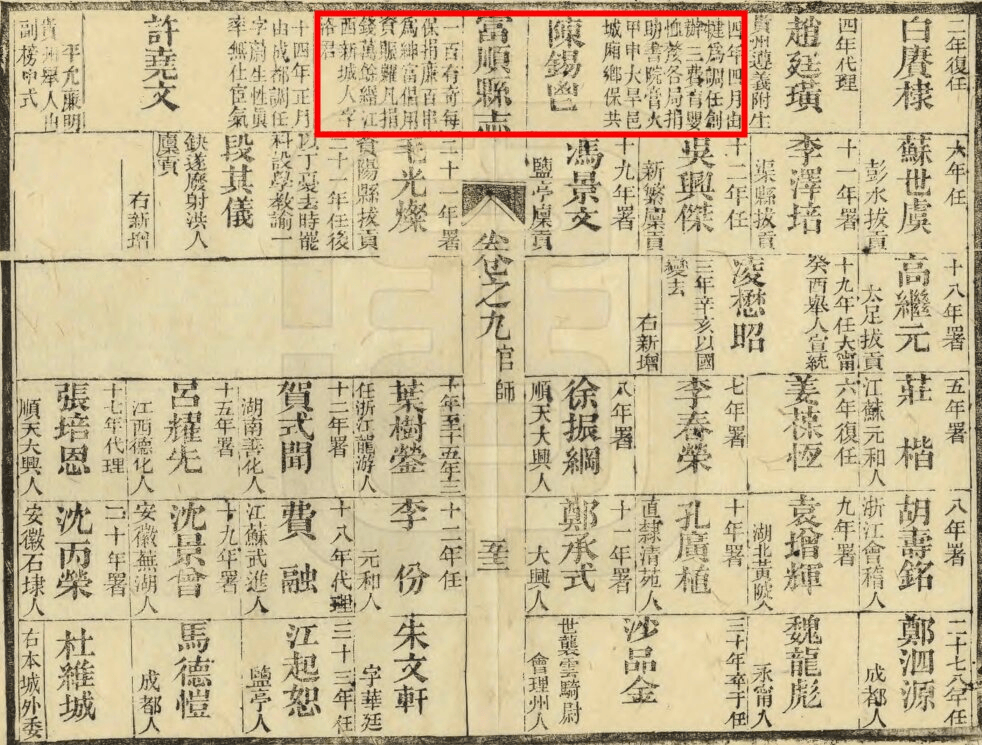 二年復任
白賡棣
四年代理
趙廷璜
貴州遵義附生
四年四月由
犍為調任創
辦三費育嬰
恤嫠各局捐
助書院膏火
甲申大旱邑
城廂鄉保共
陳錫鬯
一百有奇每
保捐廉百串
為紳富倡用
資賑糶凡捐
錢萬餘緡江
西新城人字
裕君
十四年正月
由成都調任
字蔚生性質
率無仕宦氣
許堯文
平允廉明
貴州舉人由
副榜中式
六年任
蘇世虞
彭水拔貢
十一年署
李澤培
渠縣拔貢
十二年任
吳興傑
新繁廩貢
十九年署
馮景文
鹽亭廩貢
二十一年署
毛光燦
貴陽縣拔貢
二十一年任後
以丁憂去時罷
科設學教諭一
段其儀
缺遂廢射洪人
廩貢
右新增
十八年署
高繼元
大足拔貢
十九年任大甯
癸酉舉人宣統
凌懋昭
三年辛亥以國
變去
右新增
五年署
莊楷
江蘇元和人
六年復任
姜葆恆
七年署
李春榮
八年署
徐振綱
順天大興人
十年至十五年三
葉樹鎣
任浙江龍游人
十二年署
賀式聞
湖南善化人
十五年署
呂耀先
江西德化人
十七年代理
張培恩
順天大興人
八年署
胡壽銘
浙江會稽人
九年署
袁增輝
湖北黃陂人
十年署
孔廣植
直隸清苑人
十一年署
鄭承式
大興人
十二年任
李份
元和人
十八年代理
費融
江蘇武進人
十九年署
沈景會
安徽蕪湖人
二十年署
沈丙榮
安徽石埭人
二十七八年任
鄭泗源
成都人
魏龍彪
永甯人
三十年卒于任
沙品金
世襲雲騎尉
會理州人
朱文軒
字華廷
三十三年任
江起恕
鹽亭人
馬德愷
成都人
杜維城
右本城外委
富順縣志
卷之九
官師